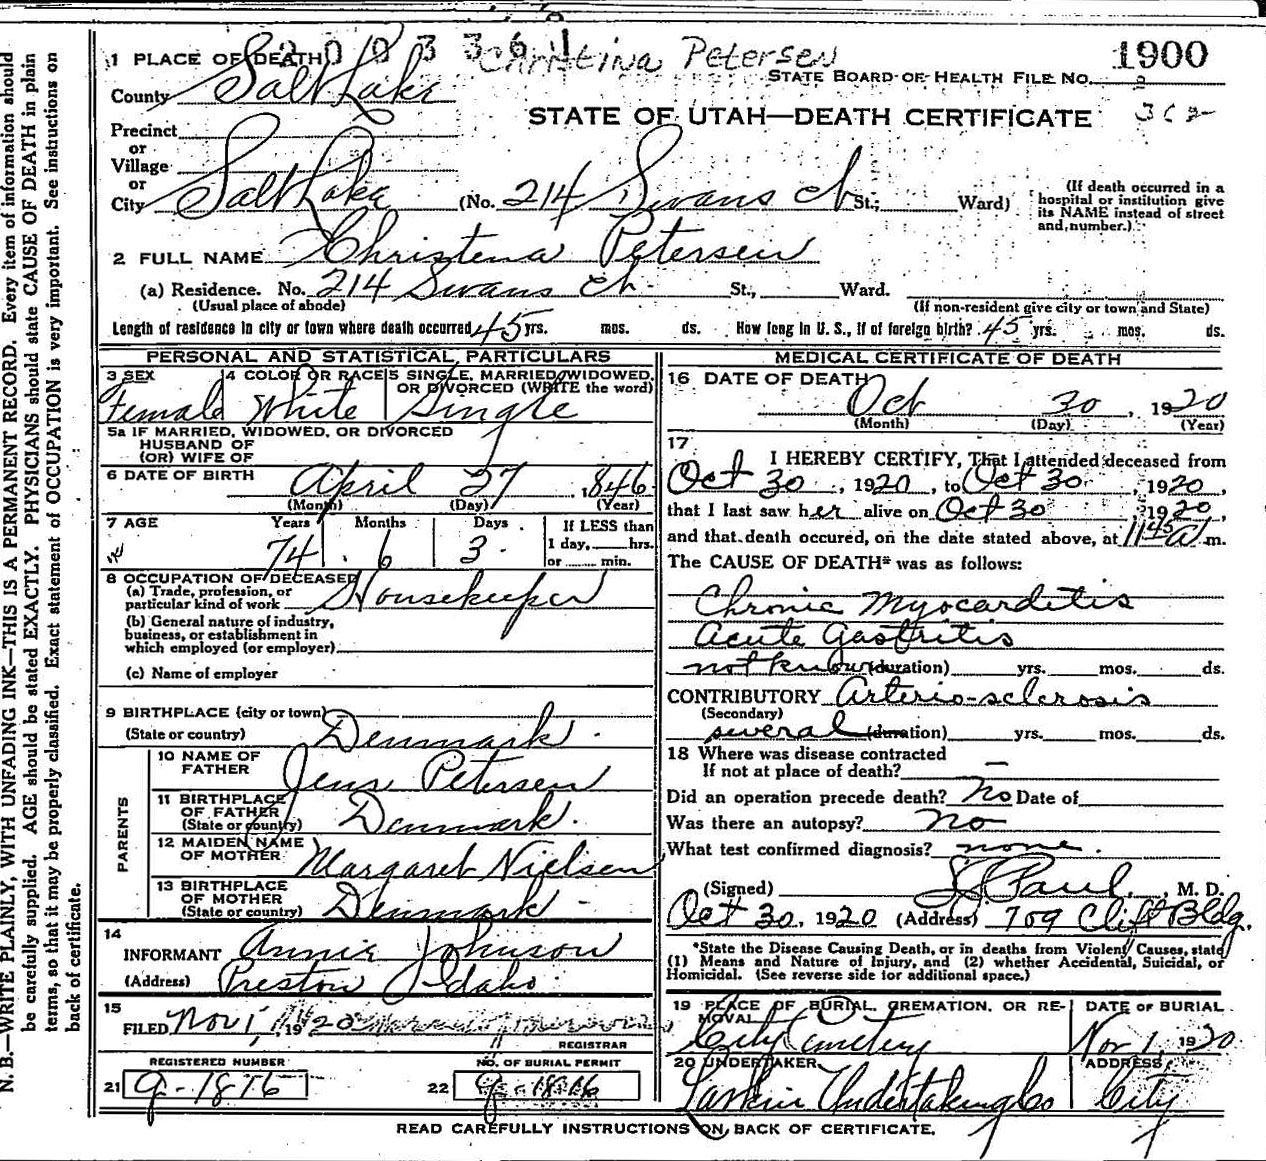 2 0 0 3 3 6 1
Christina Petersen
1900
1 PLACE OF DEATH
STATE BOARD OF HEALTH FILE NO.
County Salt Lake
STATE OF UTAH—DEATH CERTIFICATE
Precinct
or
Village
or
City Salt Lake (No. 214 Swans ch St.; Ward)
(If death occurred in a hospital or institution give its NAME instead of street and number.)
2 FULL NAME Christena Petersen
(a) Residence. No. 214 Swans ch. St., Ward.
(Usual place of abode) (If non-resident give city or town and State)
Length of residence in city or town where death occurred 45 yrs. mos. ds. How long in U. S., if of foreign birth? 45 yrs. mos. ds.
PERSONAL AND STATISTICAL PARTICULARS
3 SEX 4 COLOR OR RACE 5 SINGLE, MARRIED, WIDOWED,
OR DIVORCED (WRITE the word)
Female White Single
5a IF MARRIED, WIDOWED, OR DIVORCED
HUSBAND OF
(OR) WIFE OF
6 DATE OF BIRTH April 27, 1846
(Month) (Day) (Year)
7 AGE Years Months Days If LESS than
74 6 3 1 day, hrs.
or min.
8 OCCUPATION OF DECEASED
(a) Trade, profession, or
particular kind of work Housekeeper
(b) General nature of industry,
business, or establishment in
which employed (or employer)
(c) Name of employer
9 BIRTHPLACE (city or town)
(State or country) Denmark.
PARENTS
10 NAME OF
FATHER Jens Petersen
11 BIRTHPLACE
OF FATHER
(State or country) Denmark.
12 MAIDEN NAME
OF MOTHER Margaret Nielsen
13 BIRTHPLACE
OF MOTHER
(State or country) Denmark
14
INFORMANT Annie Johnson
(Address) Preston Idaho
15
FILED Nov 1, 1920
REGISTRAR
REGISTERED NUMBER NO. OF BURIAL PERMIT
21 22
MEDICAL CERTIFICATE OF DEATH
16 DATE OF DEATH
Oct 30, 1920
(Month) (Day) (Year)
17
I HEREBY CERTIFY, That I attended deceased from
Oct 30, 1920, to Oct 30, 1920,
that I last saw her alive on Oct 30, 1920,
and that death occured, on the date stated above, at 11 45 a m.
The CAUSE OF DEATH* was as follows:
Chronic Myocarditis
Acute Gastritis
not known (duration) yrs. mos. ds.
CONTRIBUTORY Arterio-sclerosis
(Secondary)
several (duration) yrs. mos. ds.
18 Where was disease contracted
If not at place of death? —
Did an operation precede death? No Date of
Was there an autopsy? no
What test confirmed diagnosis? none.
(Signed) Paul, M. D.
Oct 30, 1920 (Address) 709 Clift Bldg.
*State the Disease Causing Death, or in deaths from Violent Causes, state
(1) Means and Nature of Injury, and (2) whether Accidental, Suicidal, or
Homicidal. (See reverse side for additional space.)
19 PLACE OF BURIAL, CREMATION, OR RE-
MOVAL
DATE OF BURIAL
City Cemetery Nov 1 1920
20 UNDERTAKER ADDRESS
Larkin Undertaking Co City
READ CAREFULLY INSTRUCTIONS ON BACK OF CERTIFICATE.
N. B.—WRITE PLAINLY, WITH UNFADING INK—THIS IS A PERMANENT RECORD. Every item of information should
be carefully supplied. AGE should be stated EXACTLY. PHYSICIANS should state CAUSE OF DEATH in plain
terms, so that it may be properly classified. Exact statement of OCCUPATION is very important. See instructions on
back of certificate.